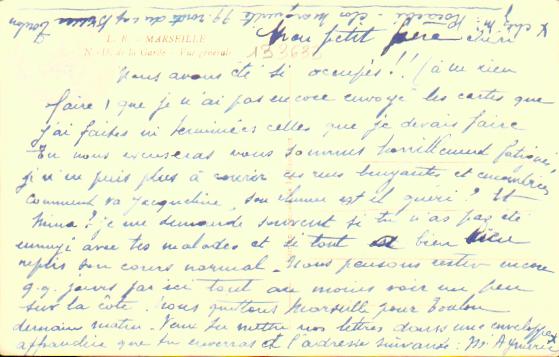 chez M. Rocelle - Clos Marguerite 79 route du cap Brun Toulon
L. R. - MARSEILLE
N.-D. de la Garde - Vue générale
133630
Mon petit père chéri
Nous avons été si occupés !! (à ne rien
faire) que je n'ai pas encore envoyé les cartes que
j'ai faites ni terminées celles que je devais faire
Tu nous excuseras nous sommes horriblement fatigués,
je n'en puis plus à courir ces rues bruyantes et encombrées
Comment va Jacqueline, son rhume est il guéri ? Et
Nina ? je me demande souvent si tu n'as pas été
ennuyé avec tes malades et si tout a bien
repris son cours normal - Nous pensons rester encore
q.q. jours par ici tout au moins voir un peu
sur la côte. Nous quittons Marseille pour Toulon
demain matin - Veux tu mettre nos lettres dans une enveloppe
affranchie que tu enverras et l'adresse suivante : M. Aymeric